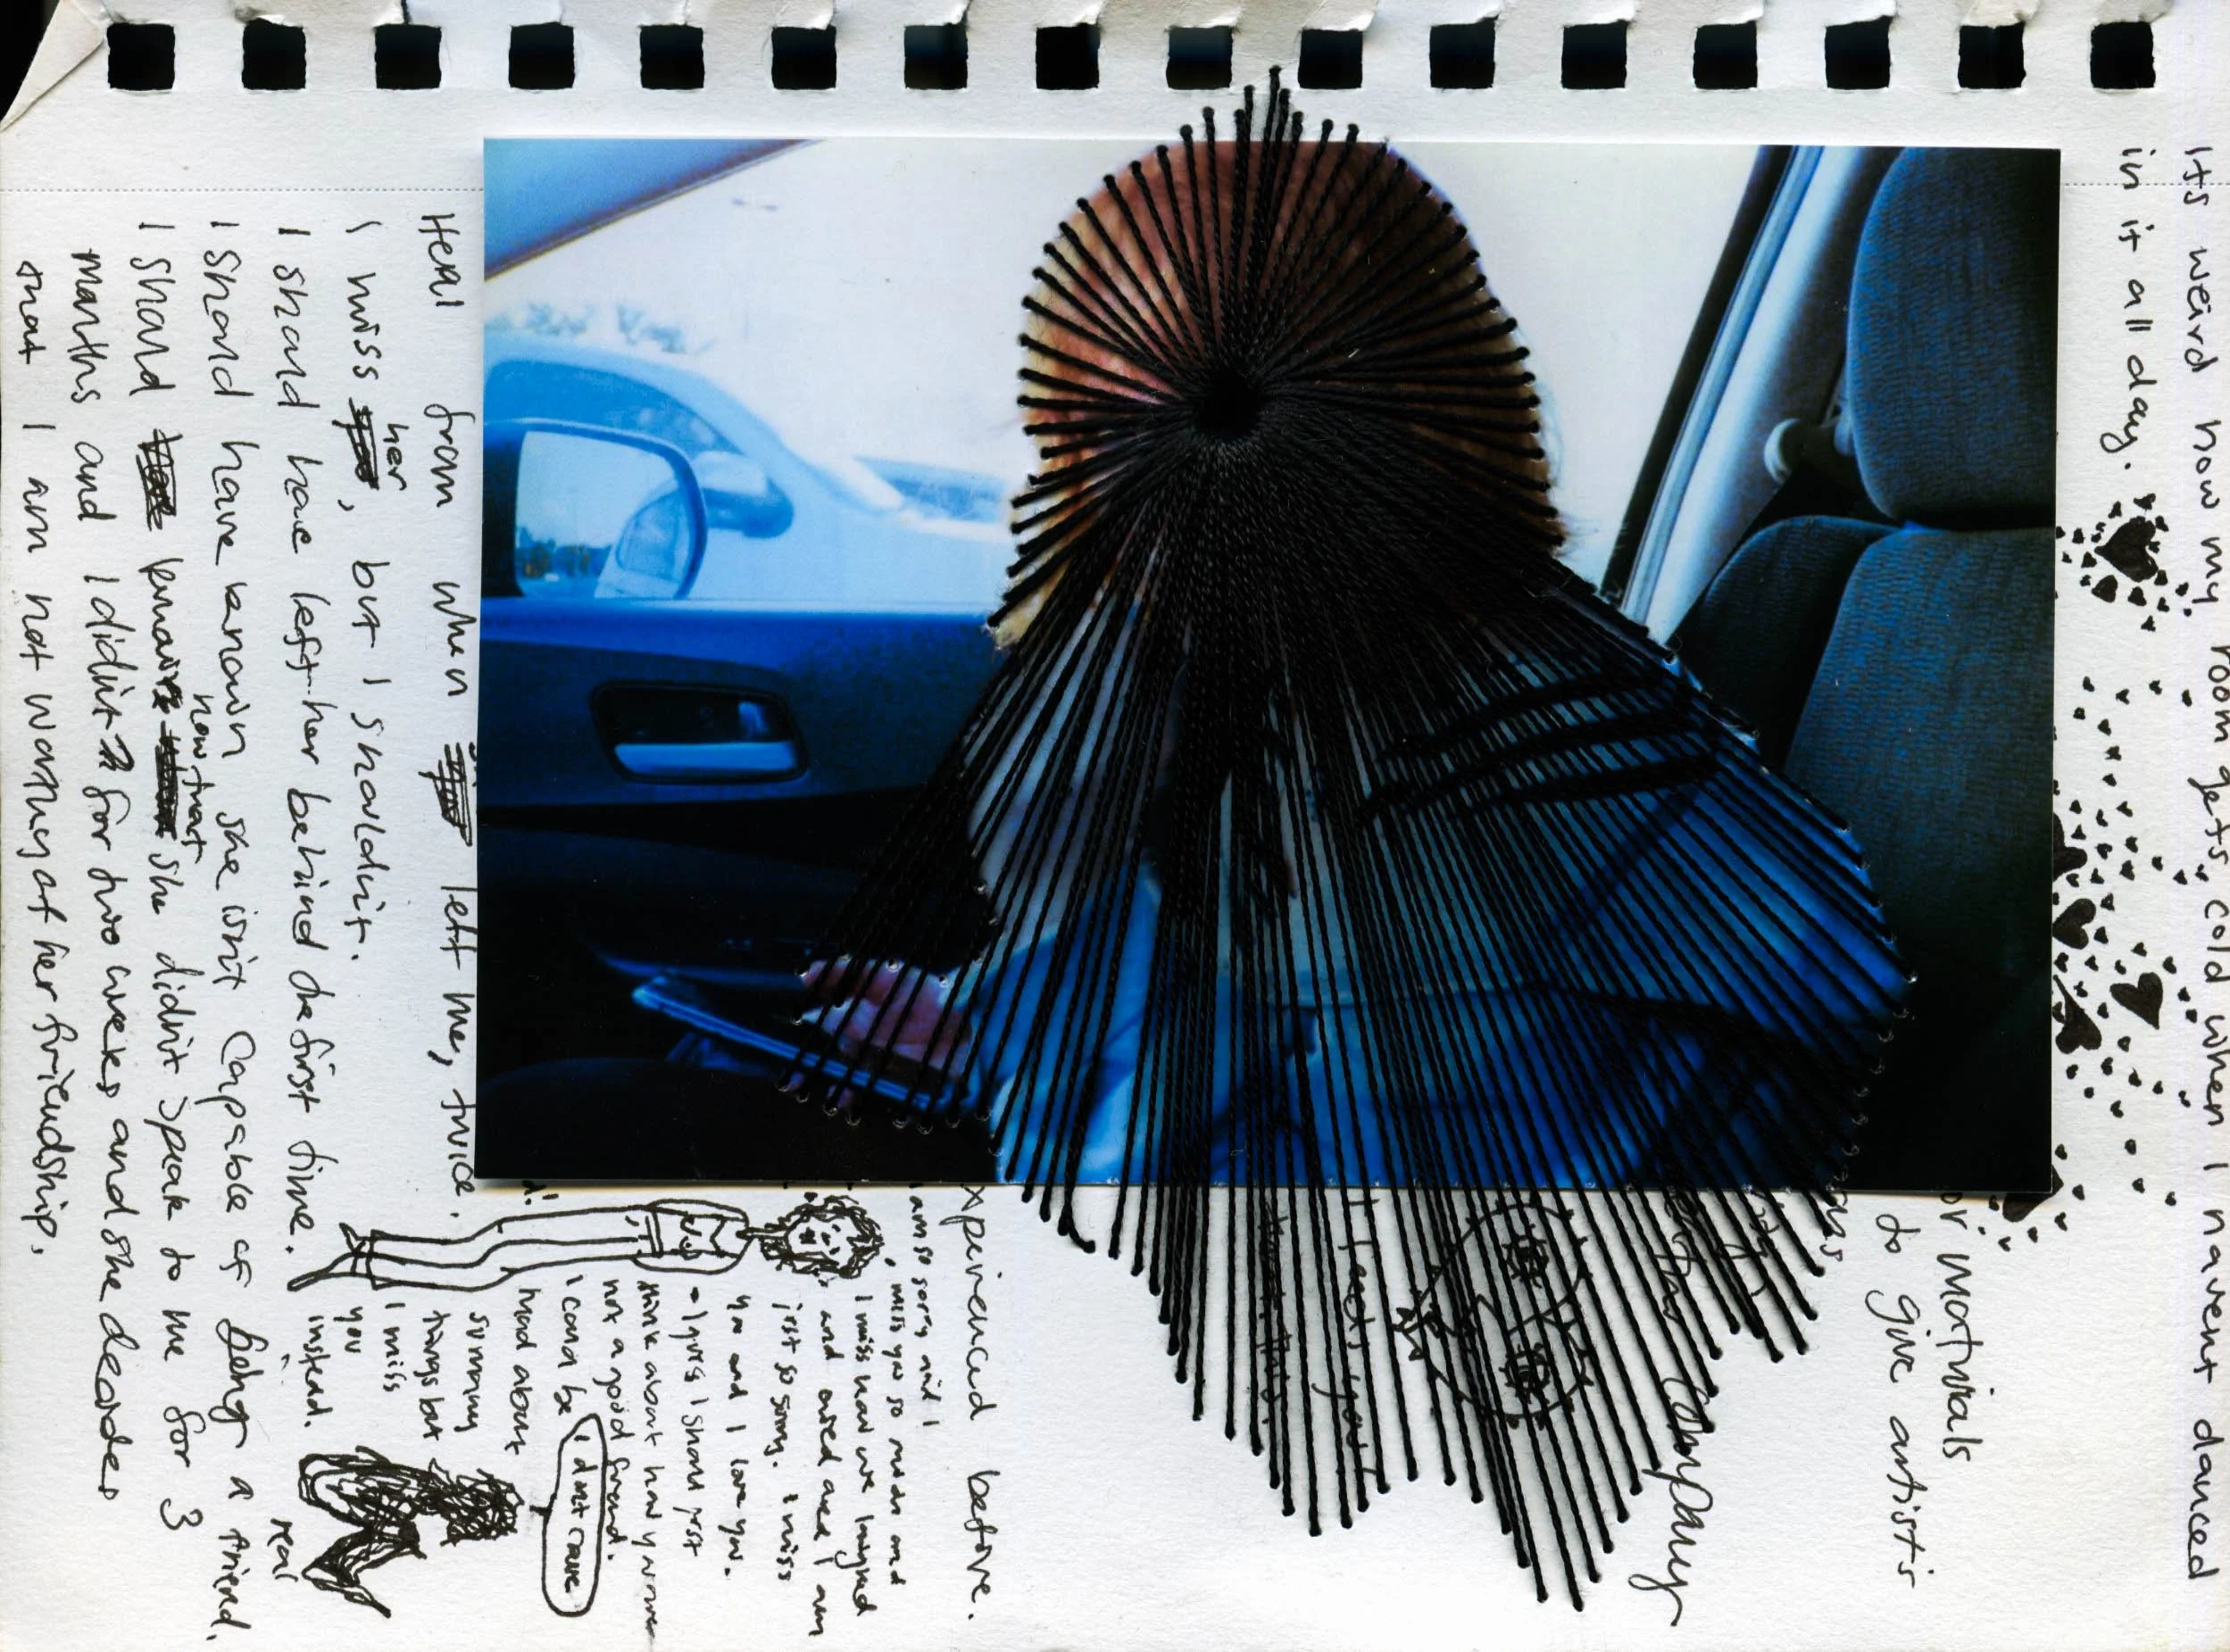 Its weird how my room gets cold when I havent danced
in it all day.
or materials
to give artists
company
I feel you
experienced before.
I am so sorry and I
miss you so much and
I miss how we laughed
and cried and I am
just so sorry. I miss
you and I love you.
- I guess I should just
think about how you were
not a good friend.
I could be
mad about
so many
things but
I miss
you
instead.
I dont care
Heal from when left me, twice.
I miss her, but I shouldnt.
I should have left her behind the first time.
I should have known she isnt capable of being a real friend.
I should know how that she didnt speak to me for 3
months and I didnt for two weeks and she decided
that I am not worthy of her friendship.